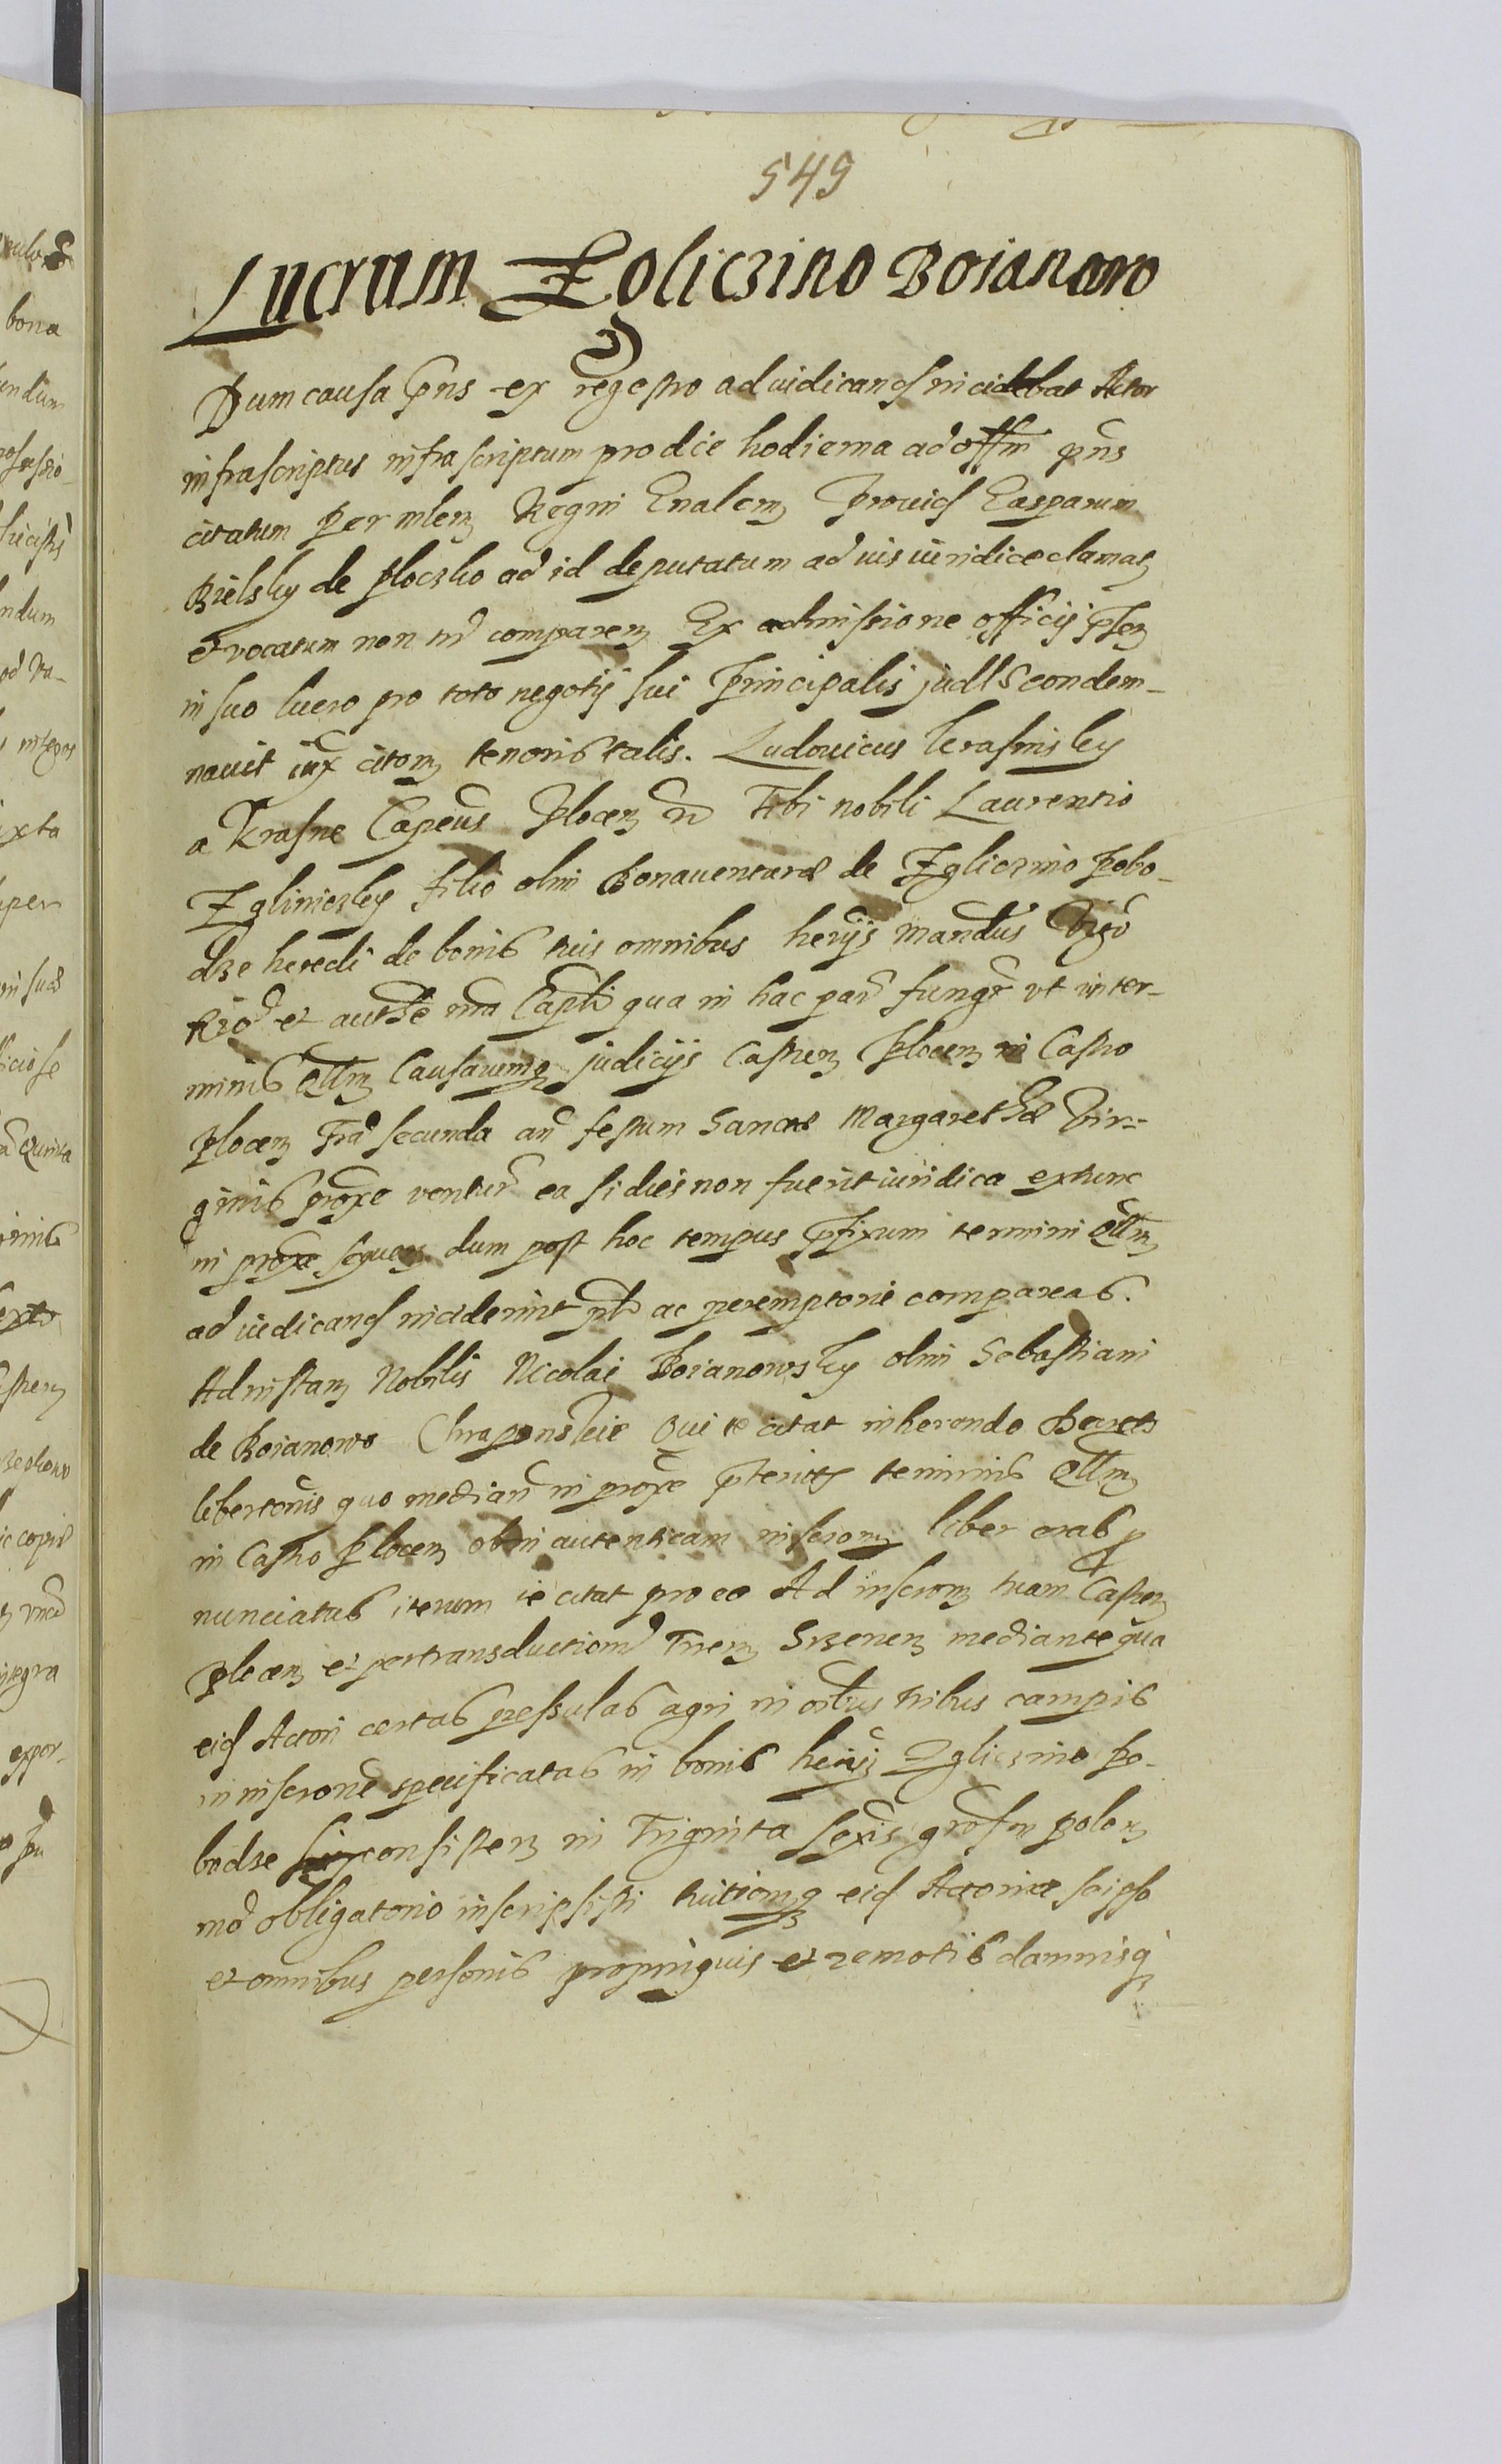 549
Lucrum Zgliczino Boianowo
Dum causa pns ex regestro ad iudicand incidebat Actor
infrascriptus infrascriptum pro die hodierna ad offm pns
citatum per mlem Regni Gnalem Provid Casparum
Bielsky de Ploczko ad id deputatum ad iuis iuridice clamat
et vocatum non tn comparen Ex admissione officij pnt
in suo lucro pro toto negotij sui Principalis judl condem-
nauit iux citom tenoris talis. Ludouicus Krasinsky
a Krasne Capeus Plocen Tibi nobili Laurentio
Zgliniczky filio olim Bonauenturae de Zgliczino Pobo-
dze heredi de bonis tuis omnibus herijs mandus
et authe mea Capli qua in hac par fungr vt in ter-
minis qllm Causarumq judicijs Castren Plocen in Castro
Plocen Fra secunda an festum Sanctae Margarethae Vir-
ginis proxe ventur ea si dies non fuerit iuridica extunc
in proxe sequen dum post hoc tempus pfixum termini qllm
ad iudicand inciderint plr ac peremptorie compareas.
Ad instam Nobilis Nicolai Boianowsky olim Sebastiani
de Boianowo Chraponskie Qui te citat inherendo Decreto
libertonis quo median in proxe pteritis terminis qllm
in Castro Plocen ob in autenticam inscrom liber eras p
nunciatus iterum te citat pro eo Ad inscrom tuam Castren
Plocen et pertransductiom Trrem Srzenen mediante qua
eid Actori certas pessulas agri in oibus tribus campis
in inscrone specificatas in bonis herijs Zgliczino Po-
bodze consisten in Triginta sexis grossu polon
mod obligatorio inscripsisti tuitiomq eid Actori a seipso
et omnibus personis propinquis et remotis damnisq